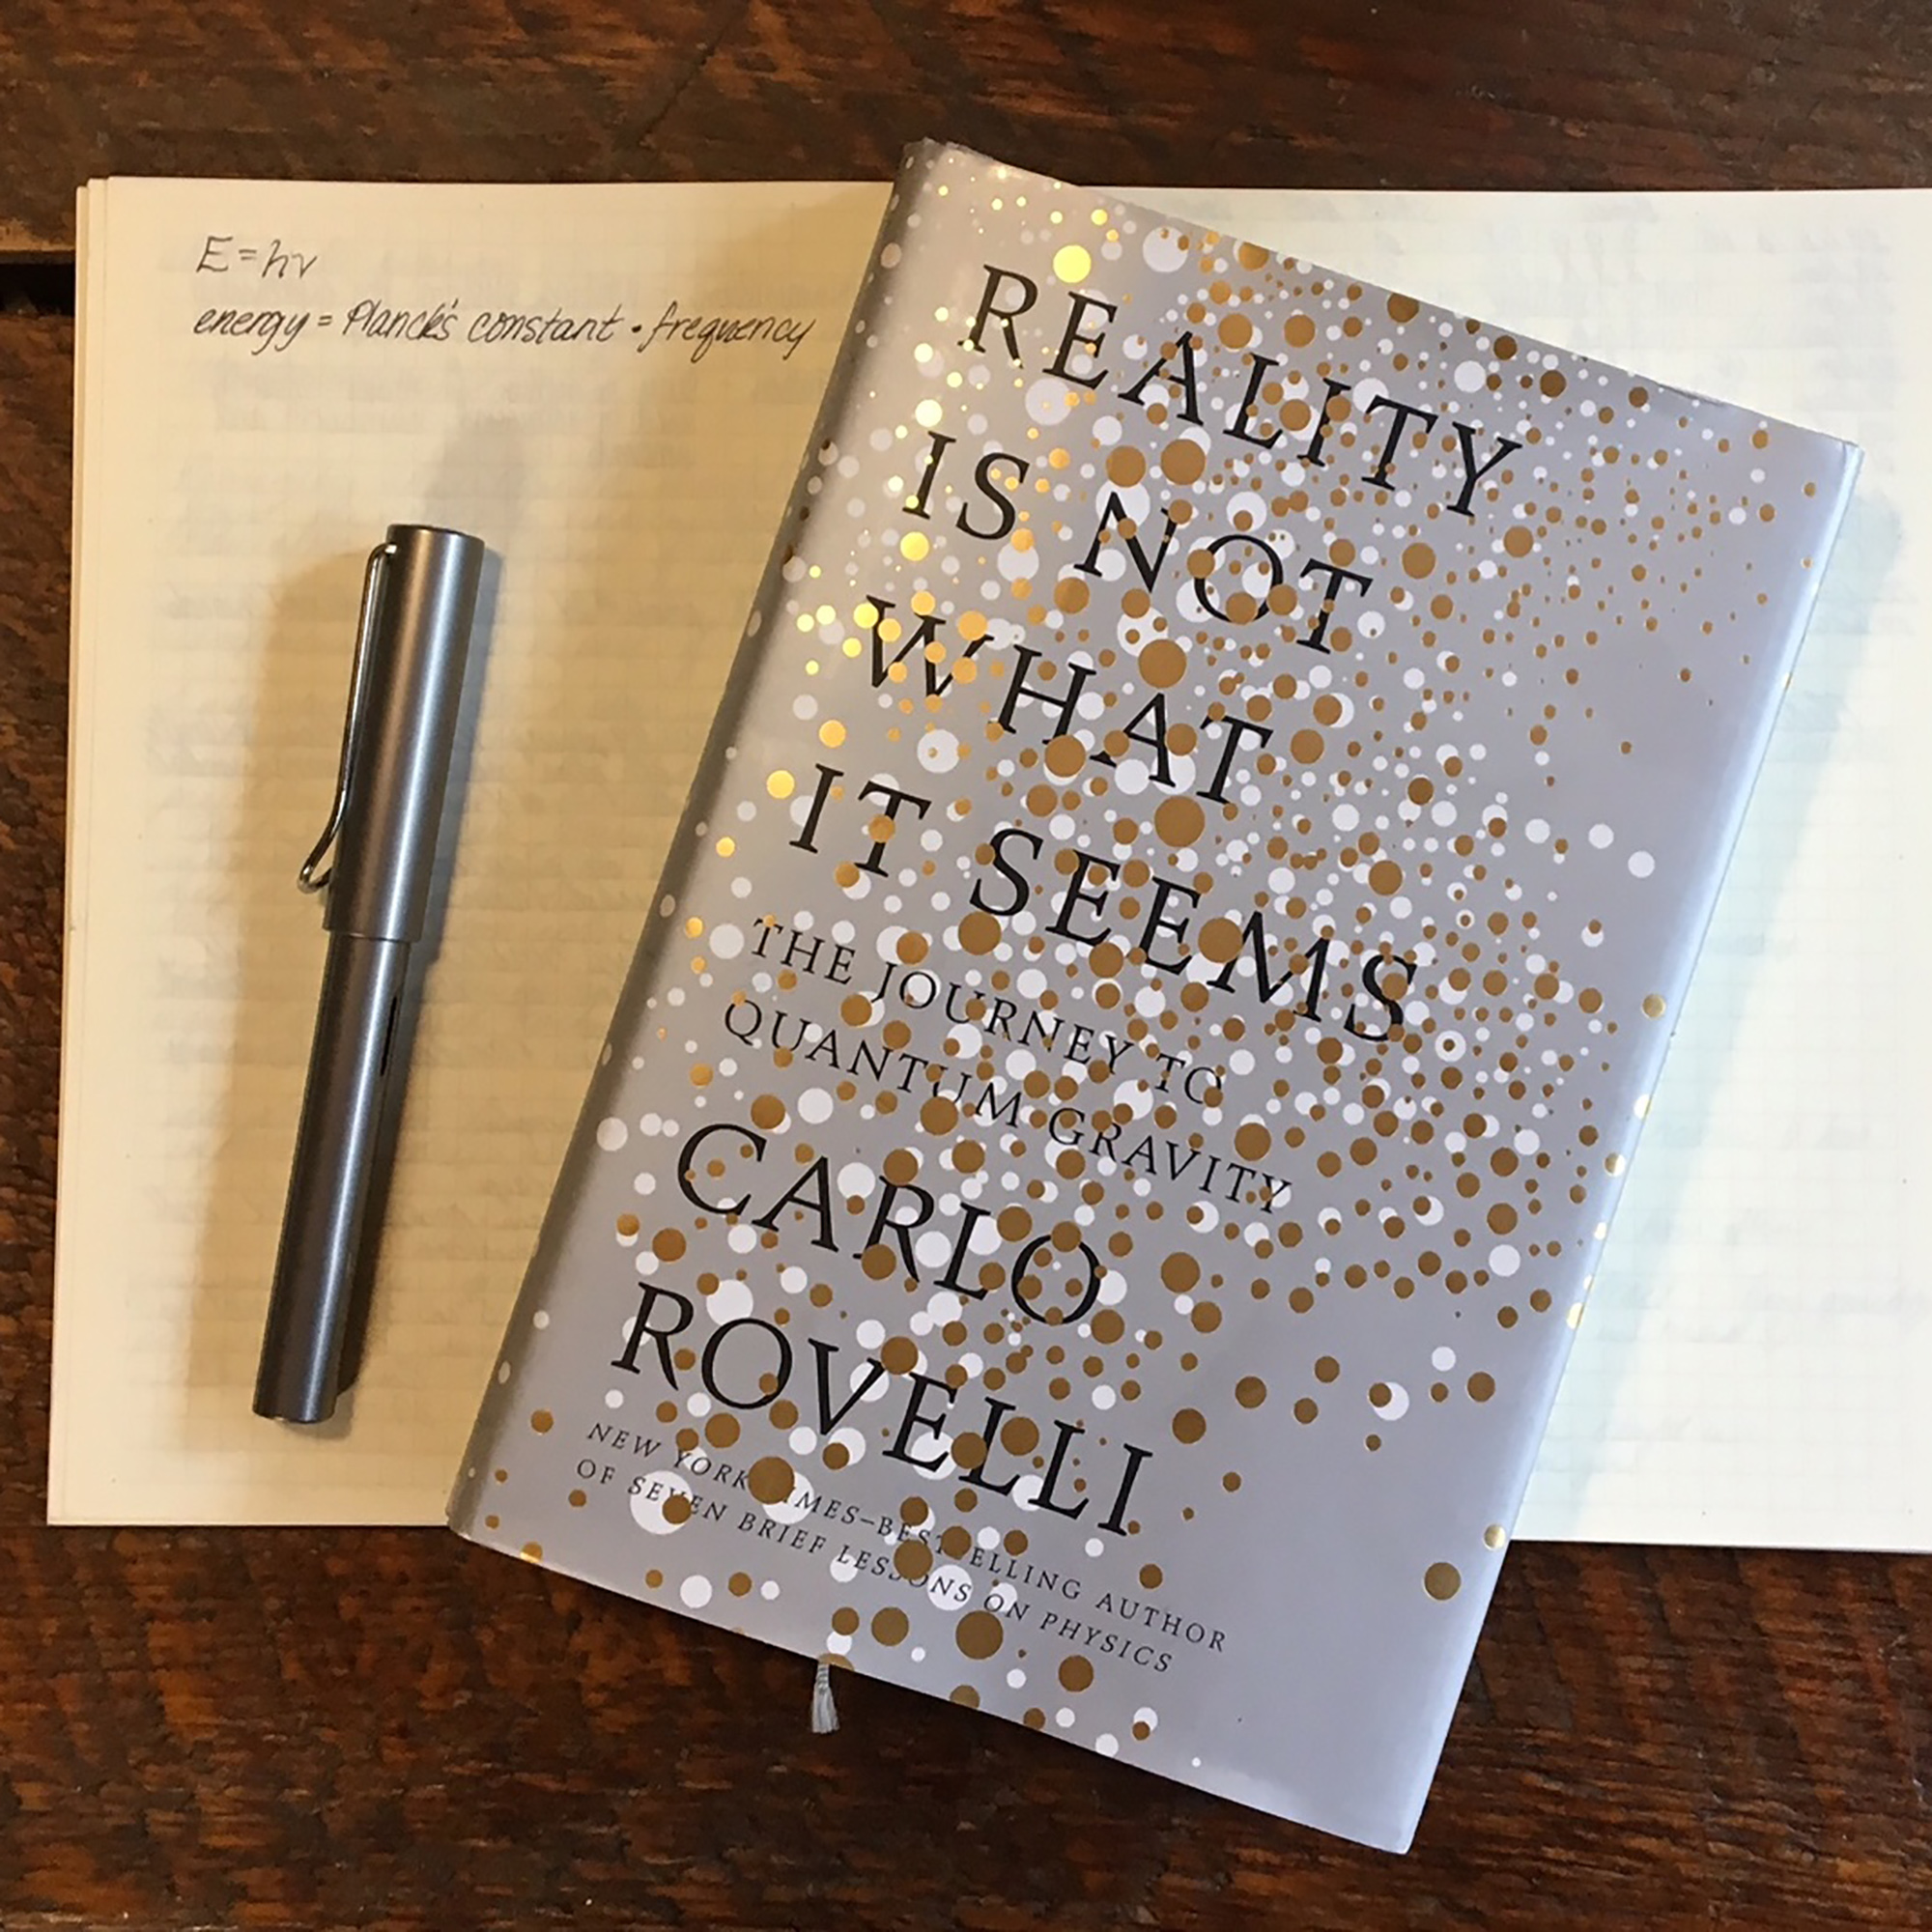 E = hν
energy = Planck's constant • frequency
REALITY
IS NOT
WHAT
IT SEEMS
THE JOURNEY TO
QUANTUM GRAVITY
CARLO
ROVELLI
NEW YORK TIMES–BESTSELLING AUTHOR
OF SEVEN BRIEF LESSONS ON PHYSICS